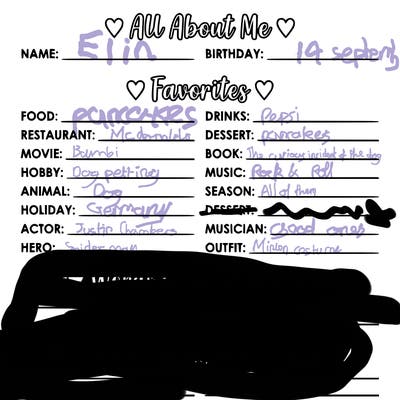 ♡ All About Me ♡
NAME: Elin BIRTHDAY: 14 septemb
♡ Favorites ♡
FOOD: pancakes DRINKS: Pepsi
RESTAURANT: Mc.donalds DESSERT: pancakes
MOVIE: Bambi BOOK: The curious incident of the dog
HOBBY: Dog petting MUSIC: Rock & Roll
ANIMAL: Dog SEASON: All of them
HOLIDAY: Germany DESSERT:
ACTOR: Justin Chambers MUSICIAN: Good ones
HERO: Spiderman OUTFIT: Minion costume